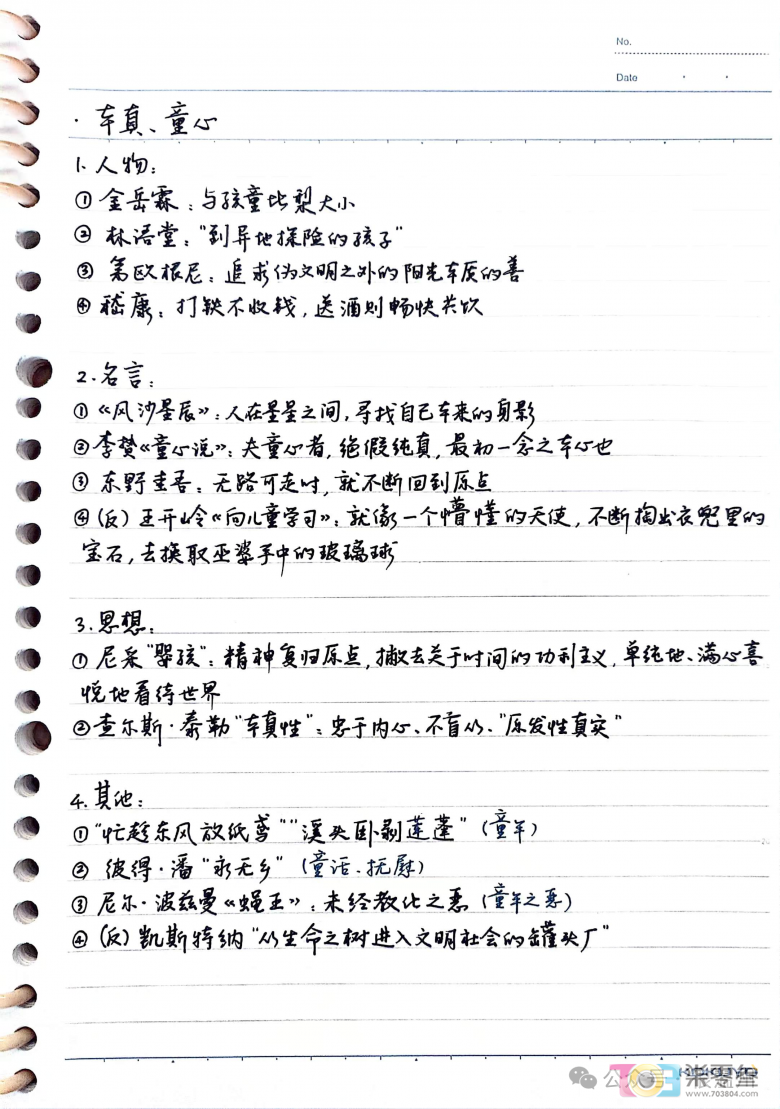 No.
Date
· 本真、童心
1. 人物:
① 金岳霖:与孩童比梨大小
② 林语堂:"到异地探险的孩子"
③ 第欧根尼:追求伪文明之外的阳光本质的善
④ 嵇康:打铁不收钱,送酒则畅快共饮
2. 名言:
①《风沙星辰》:人在星星之间,寻找自己本来的身影
②李贽《童心说》:夫童心者,绝假纯真,最初一念之本心也
③ 东野圭吾:无路可走时,就不断回到原点
④(反)王开岭《向儿童学习》:就像一个懵懂的天使,不断掏出衣兜里的
宝石,去换取巫婆手中的玻璃球
3. 思想:
① 尼采"婴孩":精神复归原点,撇去关于时间的功利主义,单纯地、满心喜
悦地看待世界
②查尔斯·泰勒"本真性":忠于内心、不盲从、"原发性真实"
4. 其他:
①"忙趁东风放纸鸢""溪头卧剥莲蓬"(童年)
② 彼得·潘"永无乡"(童话、抚慰)
③ 尼尔·波兹曼《蝇王》:未经教化之恶(童年之恶)
④(反)凯斯特纳"从生命之树进入文明社会的罐头厂"
公众号
柒零叁
www.703804.com